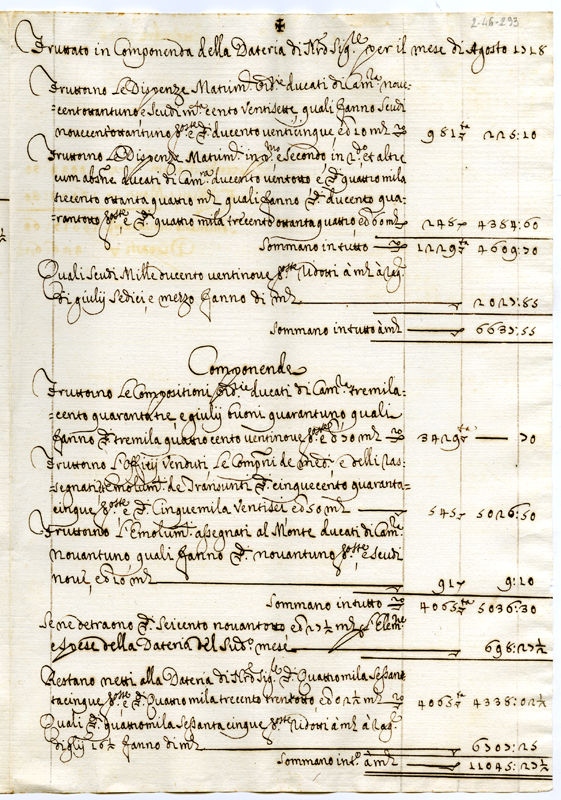 2-46-293
Fruttato in Componenda della Dateria di N'ro Sig.re per il mese di Agosto 1718
Fruttorno Le Dispenze Matrim. ord.rie ducati di Cam.ra nove-
=centottantuno e Scudi m.ta cento Ventisette, quali fanno Scudi
novecentottantuno e ducento venticinque, ed 10 m.ta 981 225:10
Fruttorno Le Dispenze Matrim. in p.mo e Secondo in 2.do et altre
cum absne. ducati di Cam.ra ducento ventotto e quattro mila
trecento ottanta quattro m.ta quali fanno ducento qua=
=rantotto e quattro mila trecento ottanta quattro, ed 60 m.ta 248 4384:60
Sommano in tutto 1229 4609:70
Quali Scudi Mille ducento ventinove ridotti à m.ta à rag.
di giulij Sedici, e mezzo fanno di m.ta 2027:85
Sommano in tutto à m.ta 6637:55
Componende
Fruttorno Le Compositioni ord.rie ducati di Cam.ra tremila=
=cento quarantatre, e giulij buoni quarantuno quali
fanno tremila quattro cento ventinove ed 70 m.ta 3429 — 70
Fruttorno L'Officij Venduti Le e delli Ras=
segnari Emolum. de Transunti cinquecento quaranta=
cinque e Cinquemila Ventisei ed 50 m.ta 545 5026:50
Fruttorno L'Emolum. assegnati al Monte ducati di Cam.ra
novantuno, quali fanno novantuno e Scudi
nove, ed 10 m.ta 91 9:10
Sommano in tutto 4065 5036:30
Se ne detraono Seicento novantotto ed 27½ m.ta Elem.
e Spese della Dateria del Sud.o mese 698:27½
Restano netti alla Dateria di N'ro Sig.re Quattromila Sessant
tacinque e Quattromila trecento trentotto, ed 02½ m.ta 4065 4338:02½
Quali quattromila Sessanta cinque ridotti à m.ta à Rag.
di giulij 16½ fanno di m.ta 6707:25
Sommano in t.o à m.ta 11045:27½